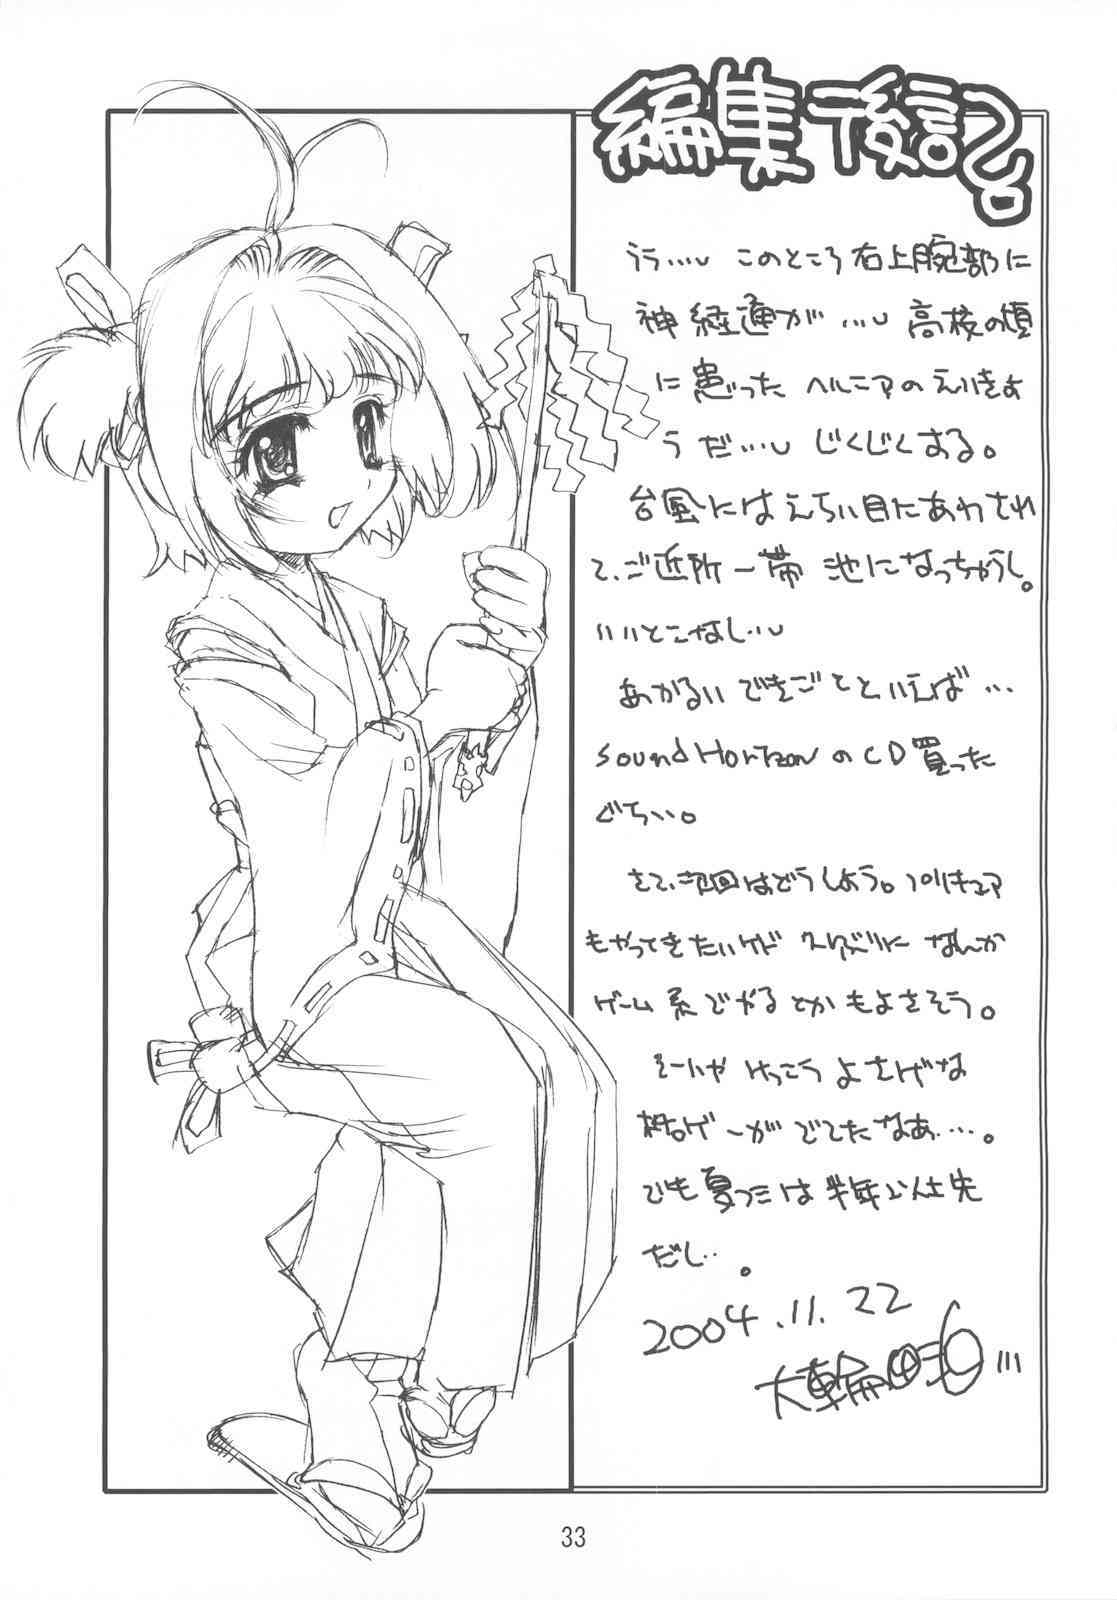 編集後記。
うう…し このところ右上腕部に
神経通が…し 高校の頃
に患った ヘルニアの えいきょ
うだ…し じくじくする。
台風にはえらい目にあわされ
て、ご近所一帯 池になっちゃうし。
いいとこなし…し
あかるい できごとといえば…
Sound HorizonのCD買った
ぐらい。
さて、次回はどうしよう。プリキュア
もやってきたいけど なんか
ゲーム系でやるとかもよさそう。
そーいや けっこう よさげな
格ゲーがでてたなぁ…。
でも夏コミは半年以上先
だし…。
2004.11.22
大輪田
33